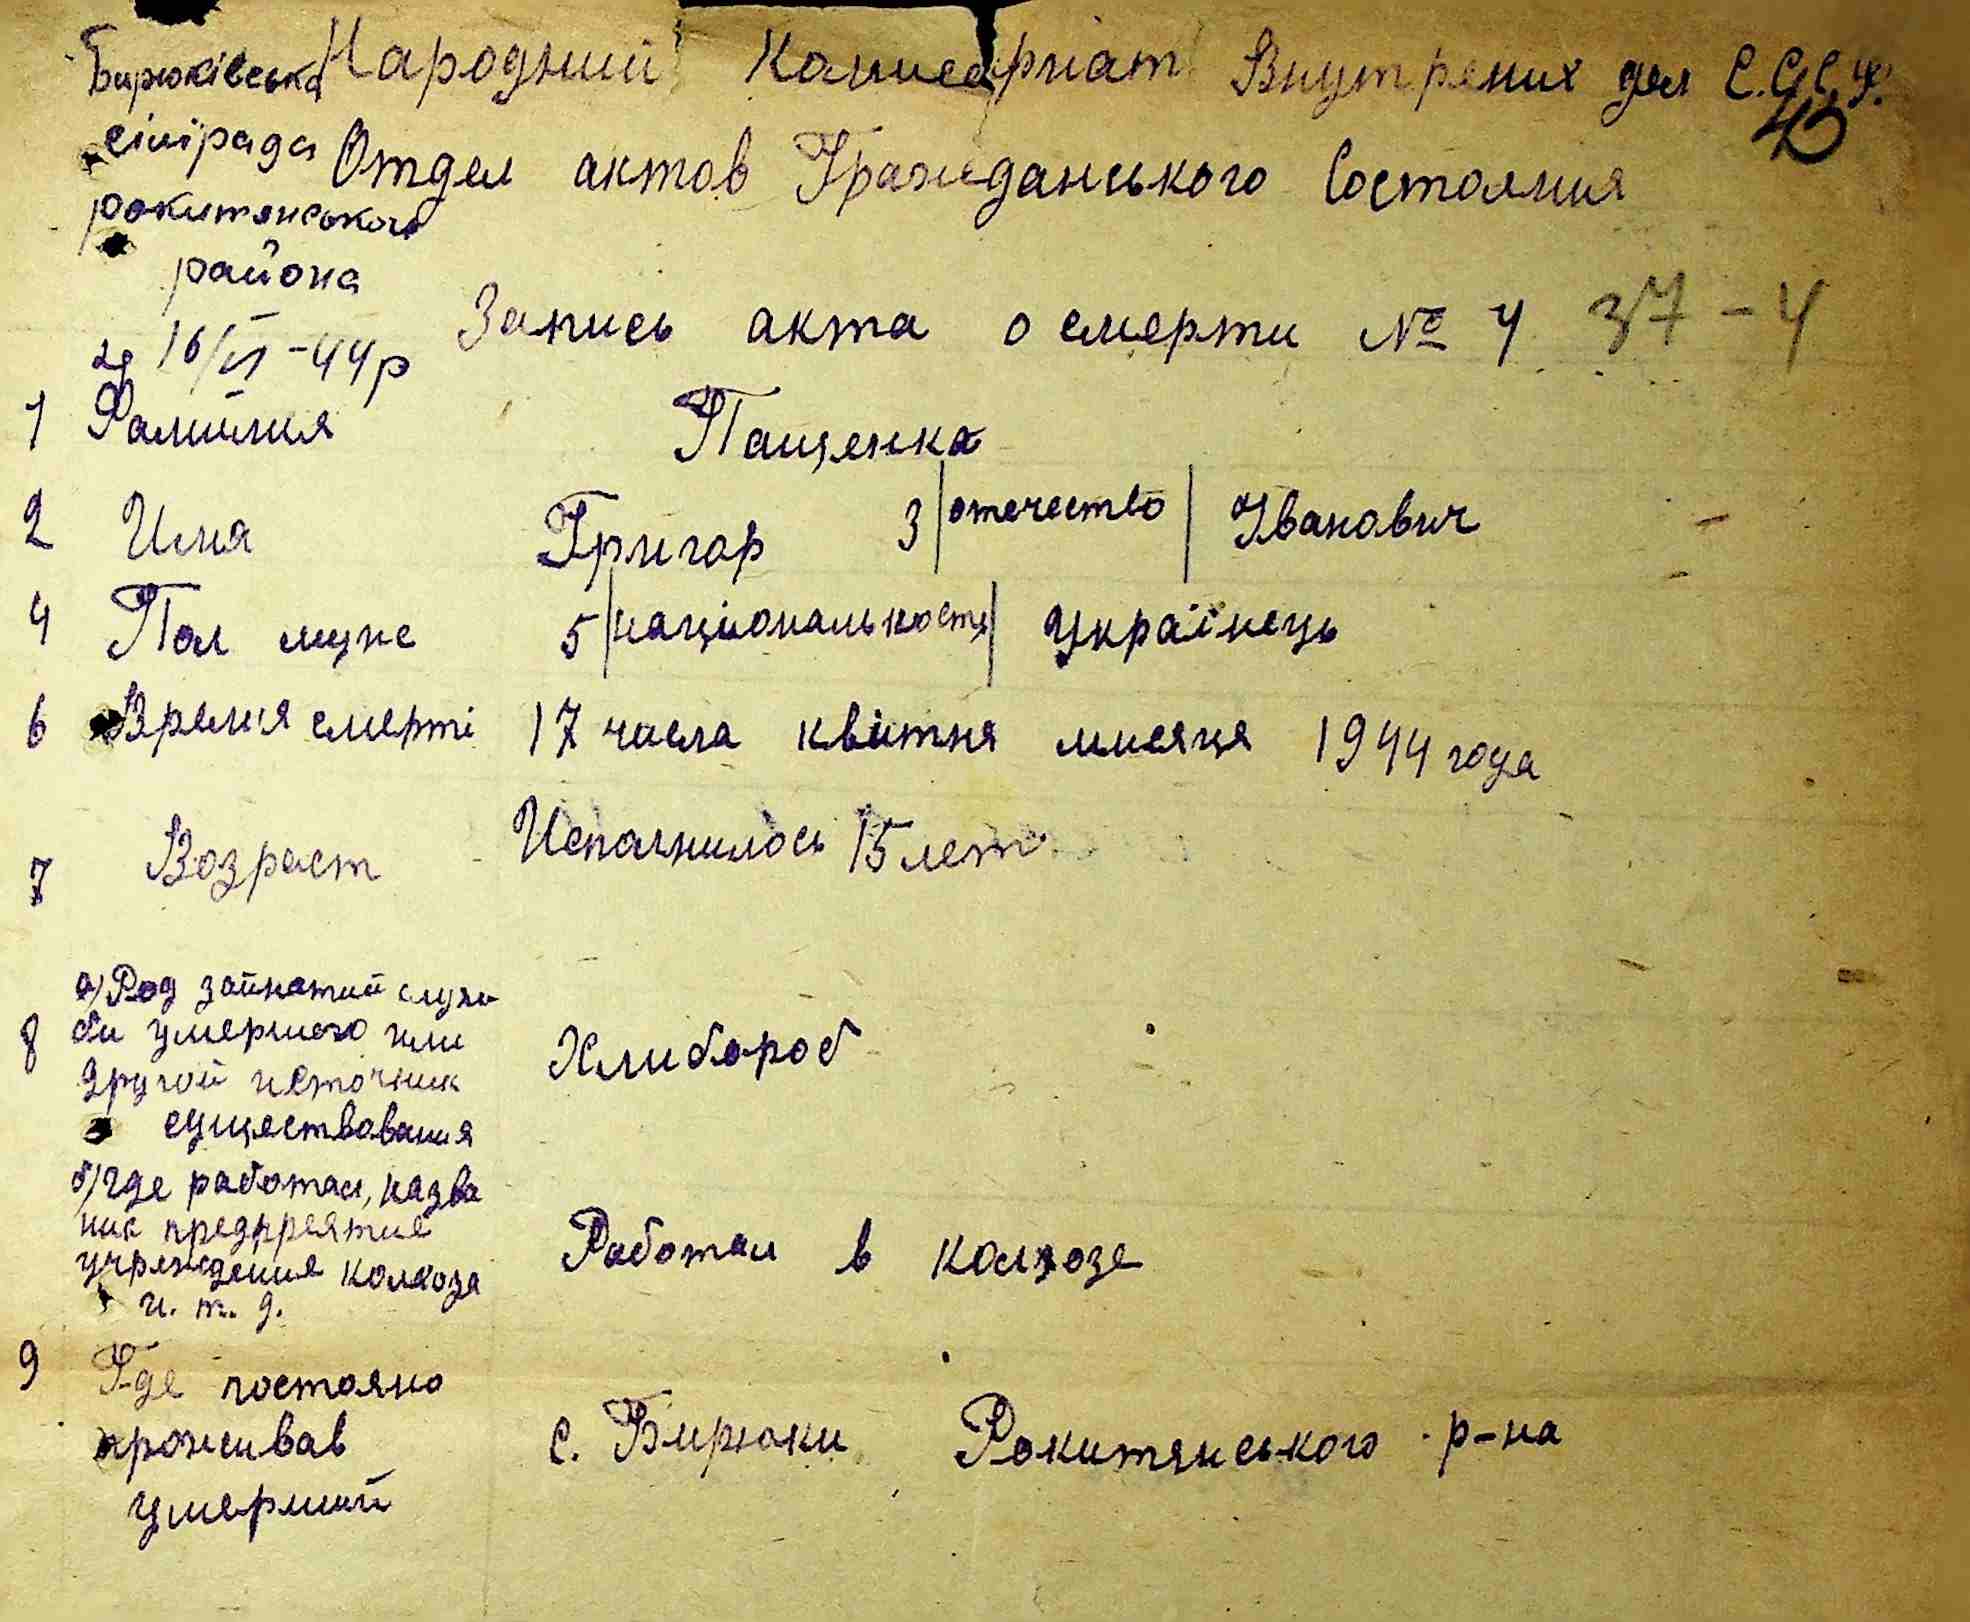 Бирюківська
сілірада
рокитянського
района
16/VI-44р
Народний Комисариат Внутрених дел С.С.С.Р.
43
Отдел актов Гражданського Состояния
Запись акта о смерти № 4 37-4
1 Фамилия Пащенка
2 Имя Григор 3 отечество Іванович
4 Пол муже 5 національность Українець
6 Времья смерті 17 числа квітня мисяця 1944 года
7 Возраст Исполнилось 15 лет
8 а) Род зайнатий служ
би умершого или
другой источник
существования
Хлибороб
б) где работал, назва
ние предпреятие
учреждения колхоза
и. т. д.
Работал в колхозе
9 Где постояно
проживав
умерший
с. Бирюки Рокитянського р-на